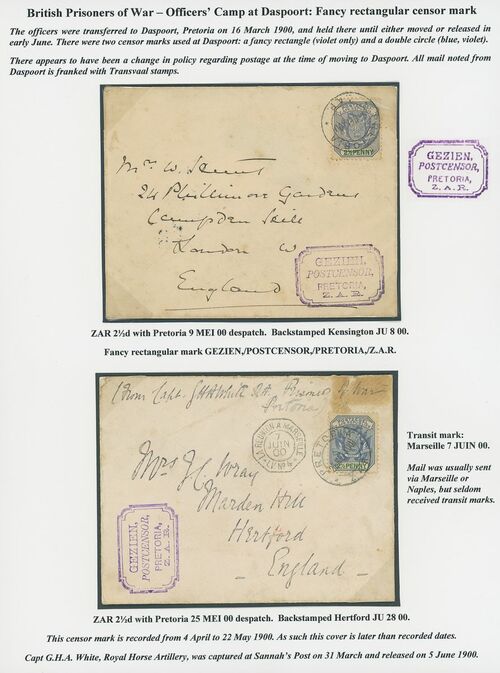 British Prisoners of War – Officers' Camp at Daspoort: Fancy rectangular censor mark
The officers were transferred to Daspoort, Pretoria on 16 March 1900, and held there until either moved or released in
early June. There were two censor marks used at Daspoort: a fancy rectangle (violet only) and a double circle (blue, violet).
There appears to have been a change in policy regarding postage at the time of moving to Daspoort. All mail noted from
Daspoort is franked with Transvaal stamps.
PENNY
Mrs W.
24 Phillimore Gardens
Campden Hill
London W
England
GEZIEN,
POSTCENSOR,
PRETORIA,
Z.A.R.
GEZIEN,
POSTCENSOR,
PRETORIA,
Z.A.R.
ZAR 2½d with Pretoria 9 MEI 00 despatch. Backstamped Kensington JU 8 00.
Fancy rectangular mark GEZIEN,/POSTCENSOR,/PRETORIA,/Z.A.R.
(From Capt. GHA White R.A. Prisoner of War
Pretoria)
LA REUNION A MARSEILLE
7
JUIN
00
PRETORIA
PENNY
Mrs J C Wray
Marden Hill
Hertford
England
GEZIEN,
POSTCENSOR,
PRETORIA,
Z.A.R.
Transit mark:
Marseille 7 JUIN 00.
Mail was usually sent
via Marseille or
Naples, but seldom
received transit marks.
ZAR 2½d with Pretoria 25 MEI 00 despatch. Backstamped Hertford JU 28 00.
This censor mark is recorded from 4 April to 22 May 1900. As such this cover is later than recorded dates.
Capt G.H.A. White, Royal Horse Artillery, was captured at Sannah's Post on 31 March and released on 5 June 1900.